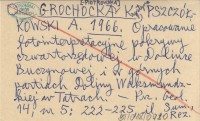 (PIOTROWSKA)
GROCHOCKA K., PSZCZÓŁ-
KOWSKI A. 1966. Opracowanie
fotointerpretacyjne pokrywy
czwartorzędowej w Dolinie
Buczynowej i w górnych
partiach Doliny Waksmundz-
kiej w Tatrach.
14, nr 5: 222-225, il. Sum.
REZ.